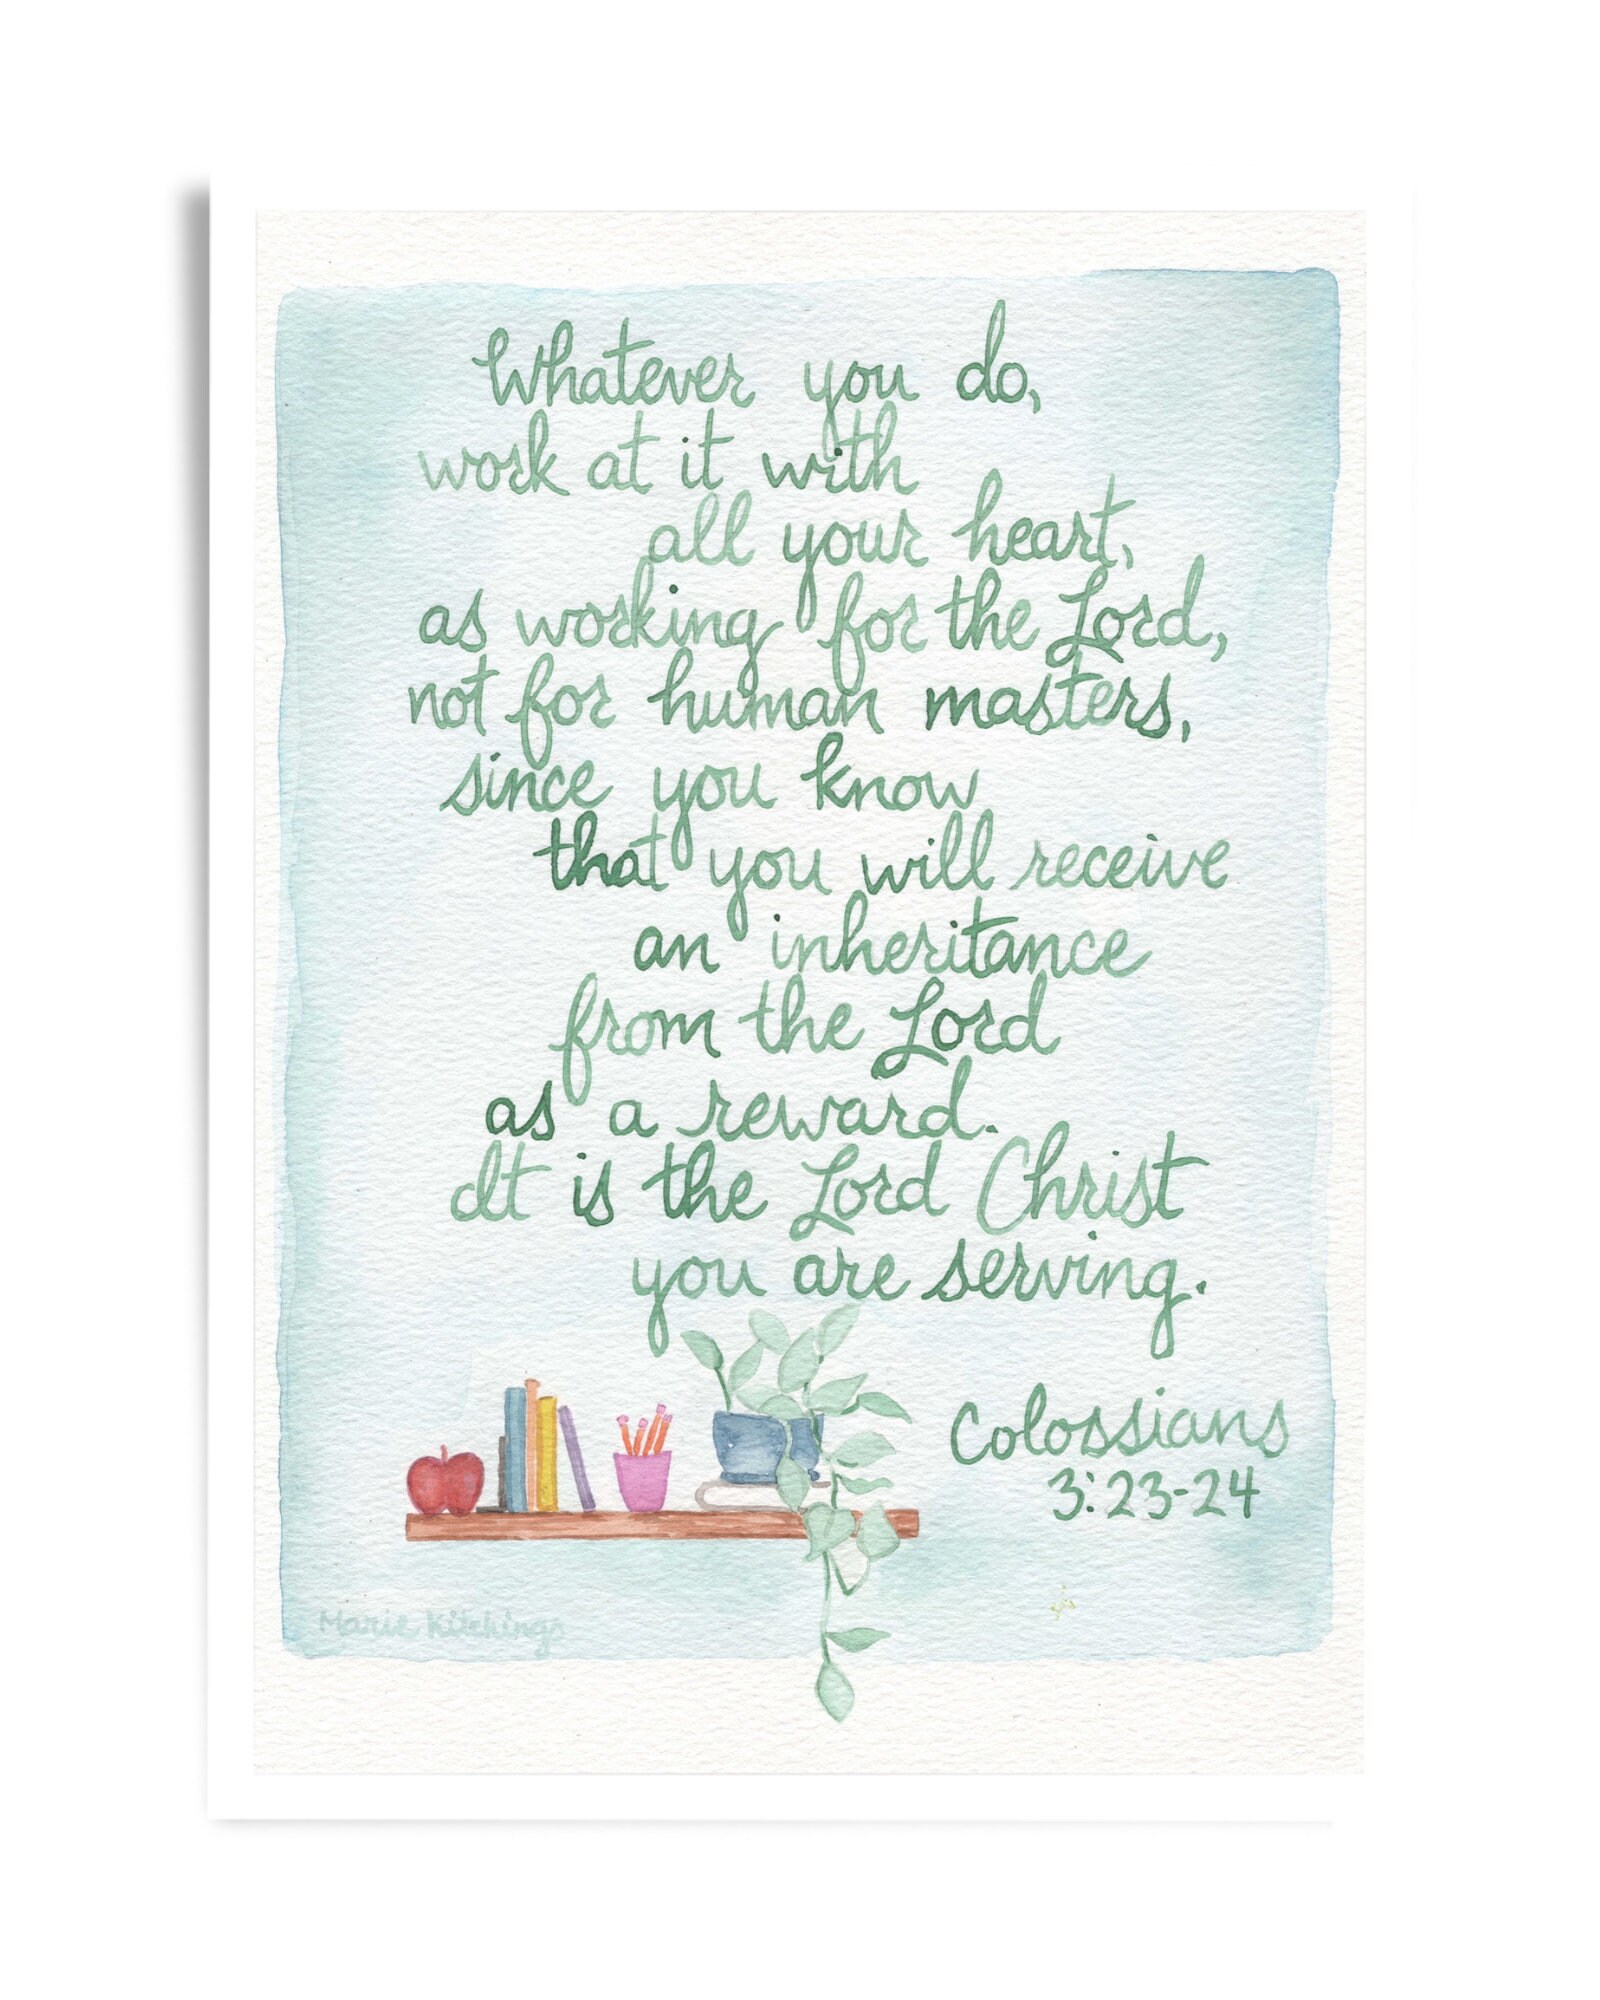 Whatever you do,
work at it with
all your heart,
as working for the Lord,
not for human masters,
since you know
that you will receive
an inheritance
from the Lord
as a reward.
It is the Lord Christ
you are serving.
Colossians
3:23-24
Marie Kitchings